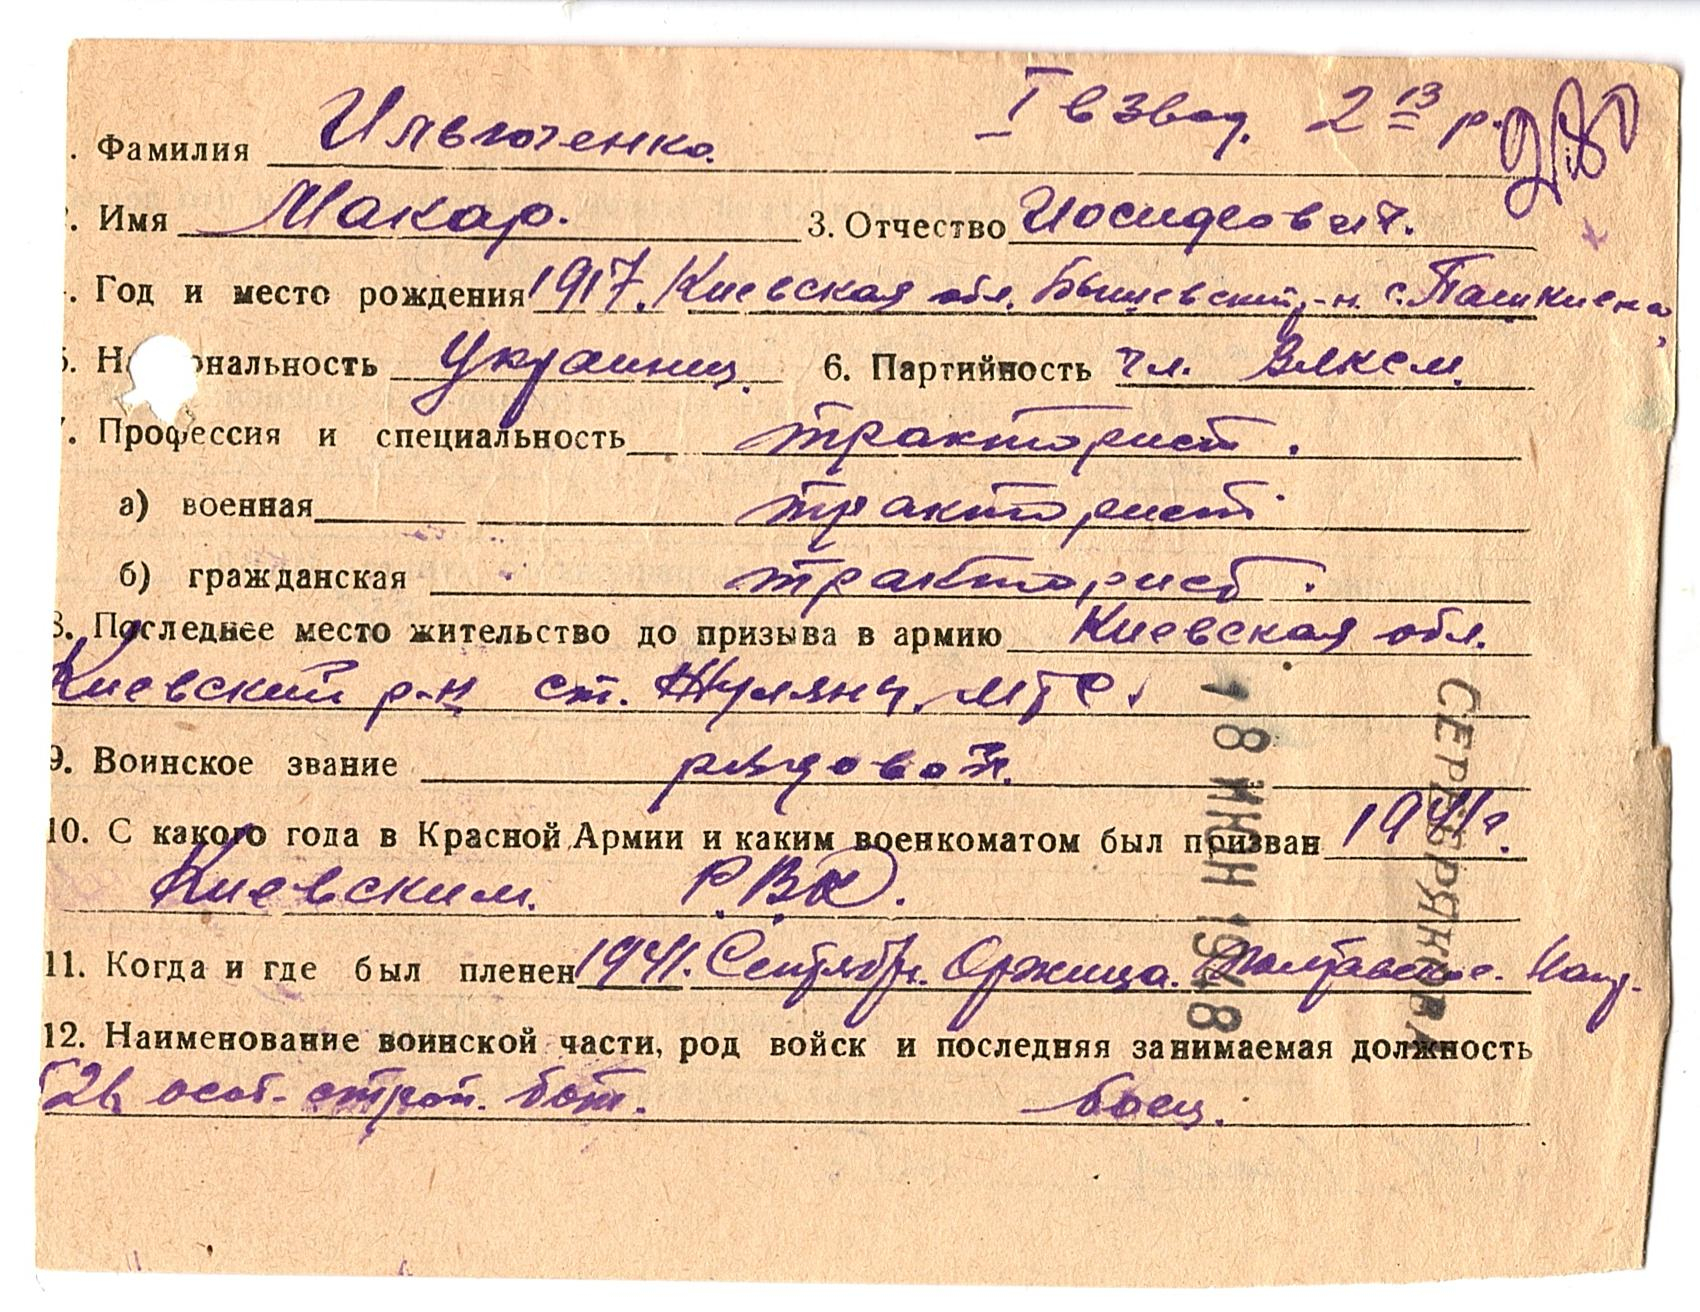 I взвод. 2 р.
. Фамилия Ильюченко.
. Имя Макар. 3. Отчество Иосифович.
. Год и место рождения 1917. Киевская обл. Бышевский р-н. с.
5. Н ональность Украинец. 6. Партийность чл. ВЛКСМ.
7. Профессия и специальность тракторист.
а) военная тракторист
б) гражданская тракторист.
8. Последнее место жительство до призыва в армию Киевская обл.
Киевский р-н ст. Жуляны, МТС.
9. Воинское звание рядовой.
10. С какого года в Красной Армии и каким военкоматом был призван 1941 г.
Киевским. Р.В.К.
11. Когда и где был пленен 1941. Сентябрь. Оржица. Полтавское. Напр.
12. Наименование воинской части, род войск и последняя занимаемая должность
особ. строй. бат. боец.
18 ИЮН 1948
СЕРЕБРЯКОВА